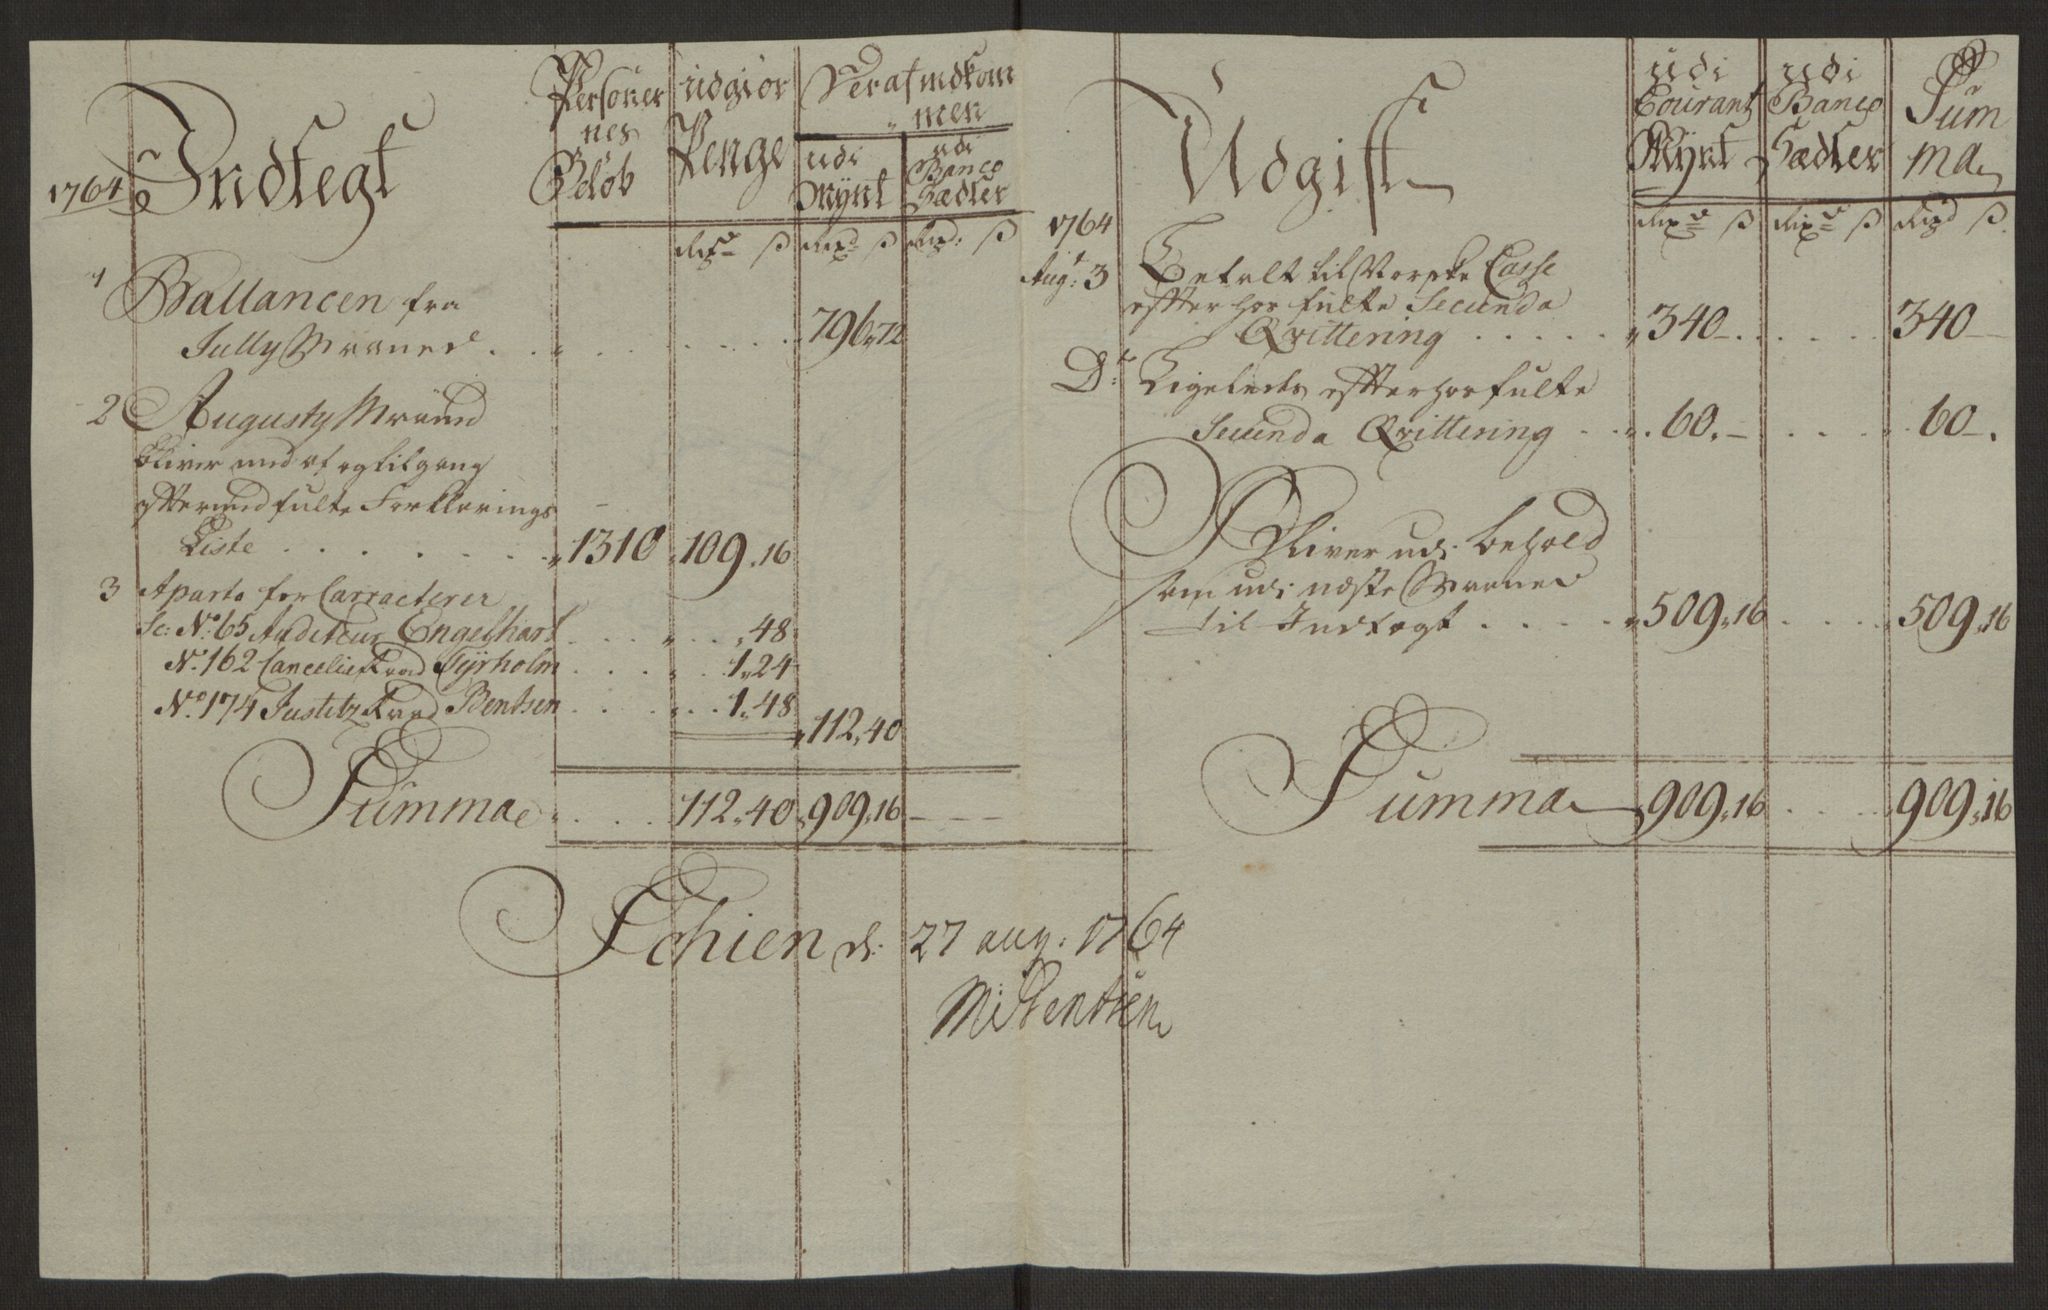 1764
Indtegt
Personer
nes
Beløb
udgiør
Penge
Deraf indkom
men
udi
Mÿnt
udi
Banco
Sædler
Rixd ß Rixd ß Rixd: ß
1 Ballancen fra
Jully Maaned . . . . . . . . 796 „ 72
2 Augusty Maaned
bliver med af og tilgang
effter indfulte Forklarings
Liste . . . . . . . „ 1310 „ 109 „ 16
3 Aparte for Carracterer
Sc: No: 65 Auditeur Engelhart . . . . „ . . „ 48
No. 162 Cancellie Raad Tÿrholm . . . . „ . . 1 „ 24
No. 174 Justitz Raad Bentsen . . . . . . 1 „ 48
„ 112 „ 40
Summa . . . . 112 „ 40 „ 909 „ 16 — — —
Udgift
udi
Courant
Mÿnt
udi
Banco
Sædler
Sum
ma
Rixd ß Rixd ß Rixd ß
1764
Augt: 3 Betalt til Norske Casse
effter hos fulte Secunda
Qvittering . . . . . „ 340 — . . . . . 340 —
Dt: Ligeledes effter hosfulte
Secunda Qvittering . . „ . 60 . — . . . . 60 — .
Bliver udi behold
som udi næste Maaned
til Indtegt . . . . . „ 509 „ 16 . . . . „ 509 „ 16
Summa „ 909 „ 16 . . . . „ 909 „ 16
Schien d: 27 aug: 1764
M: Bentsen